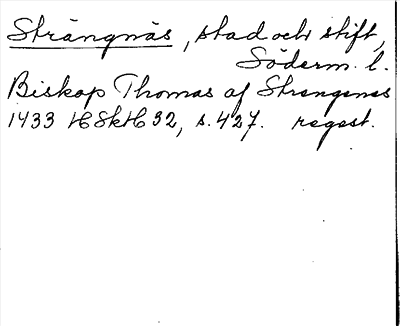 Strängnäs, stad och stift,
Söderm. l.
Biskop Thomas af Strengenes
1433 HSkH 32, s. 427. regest.